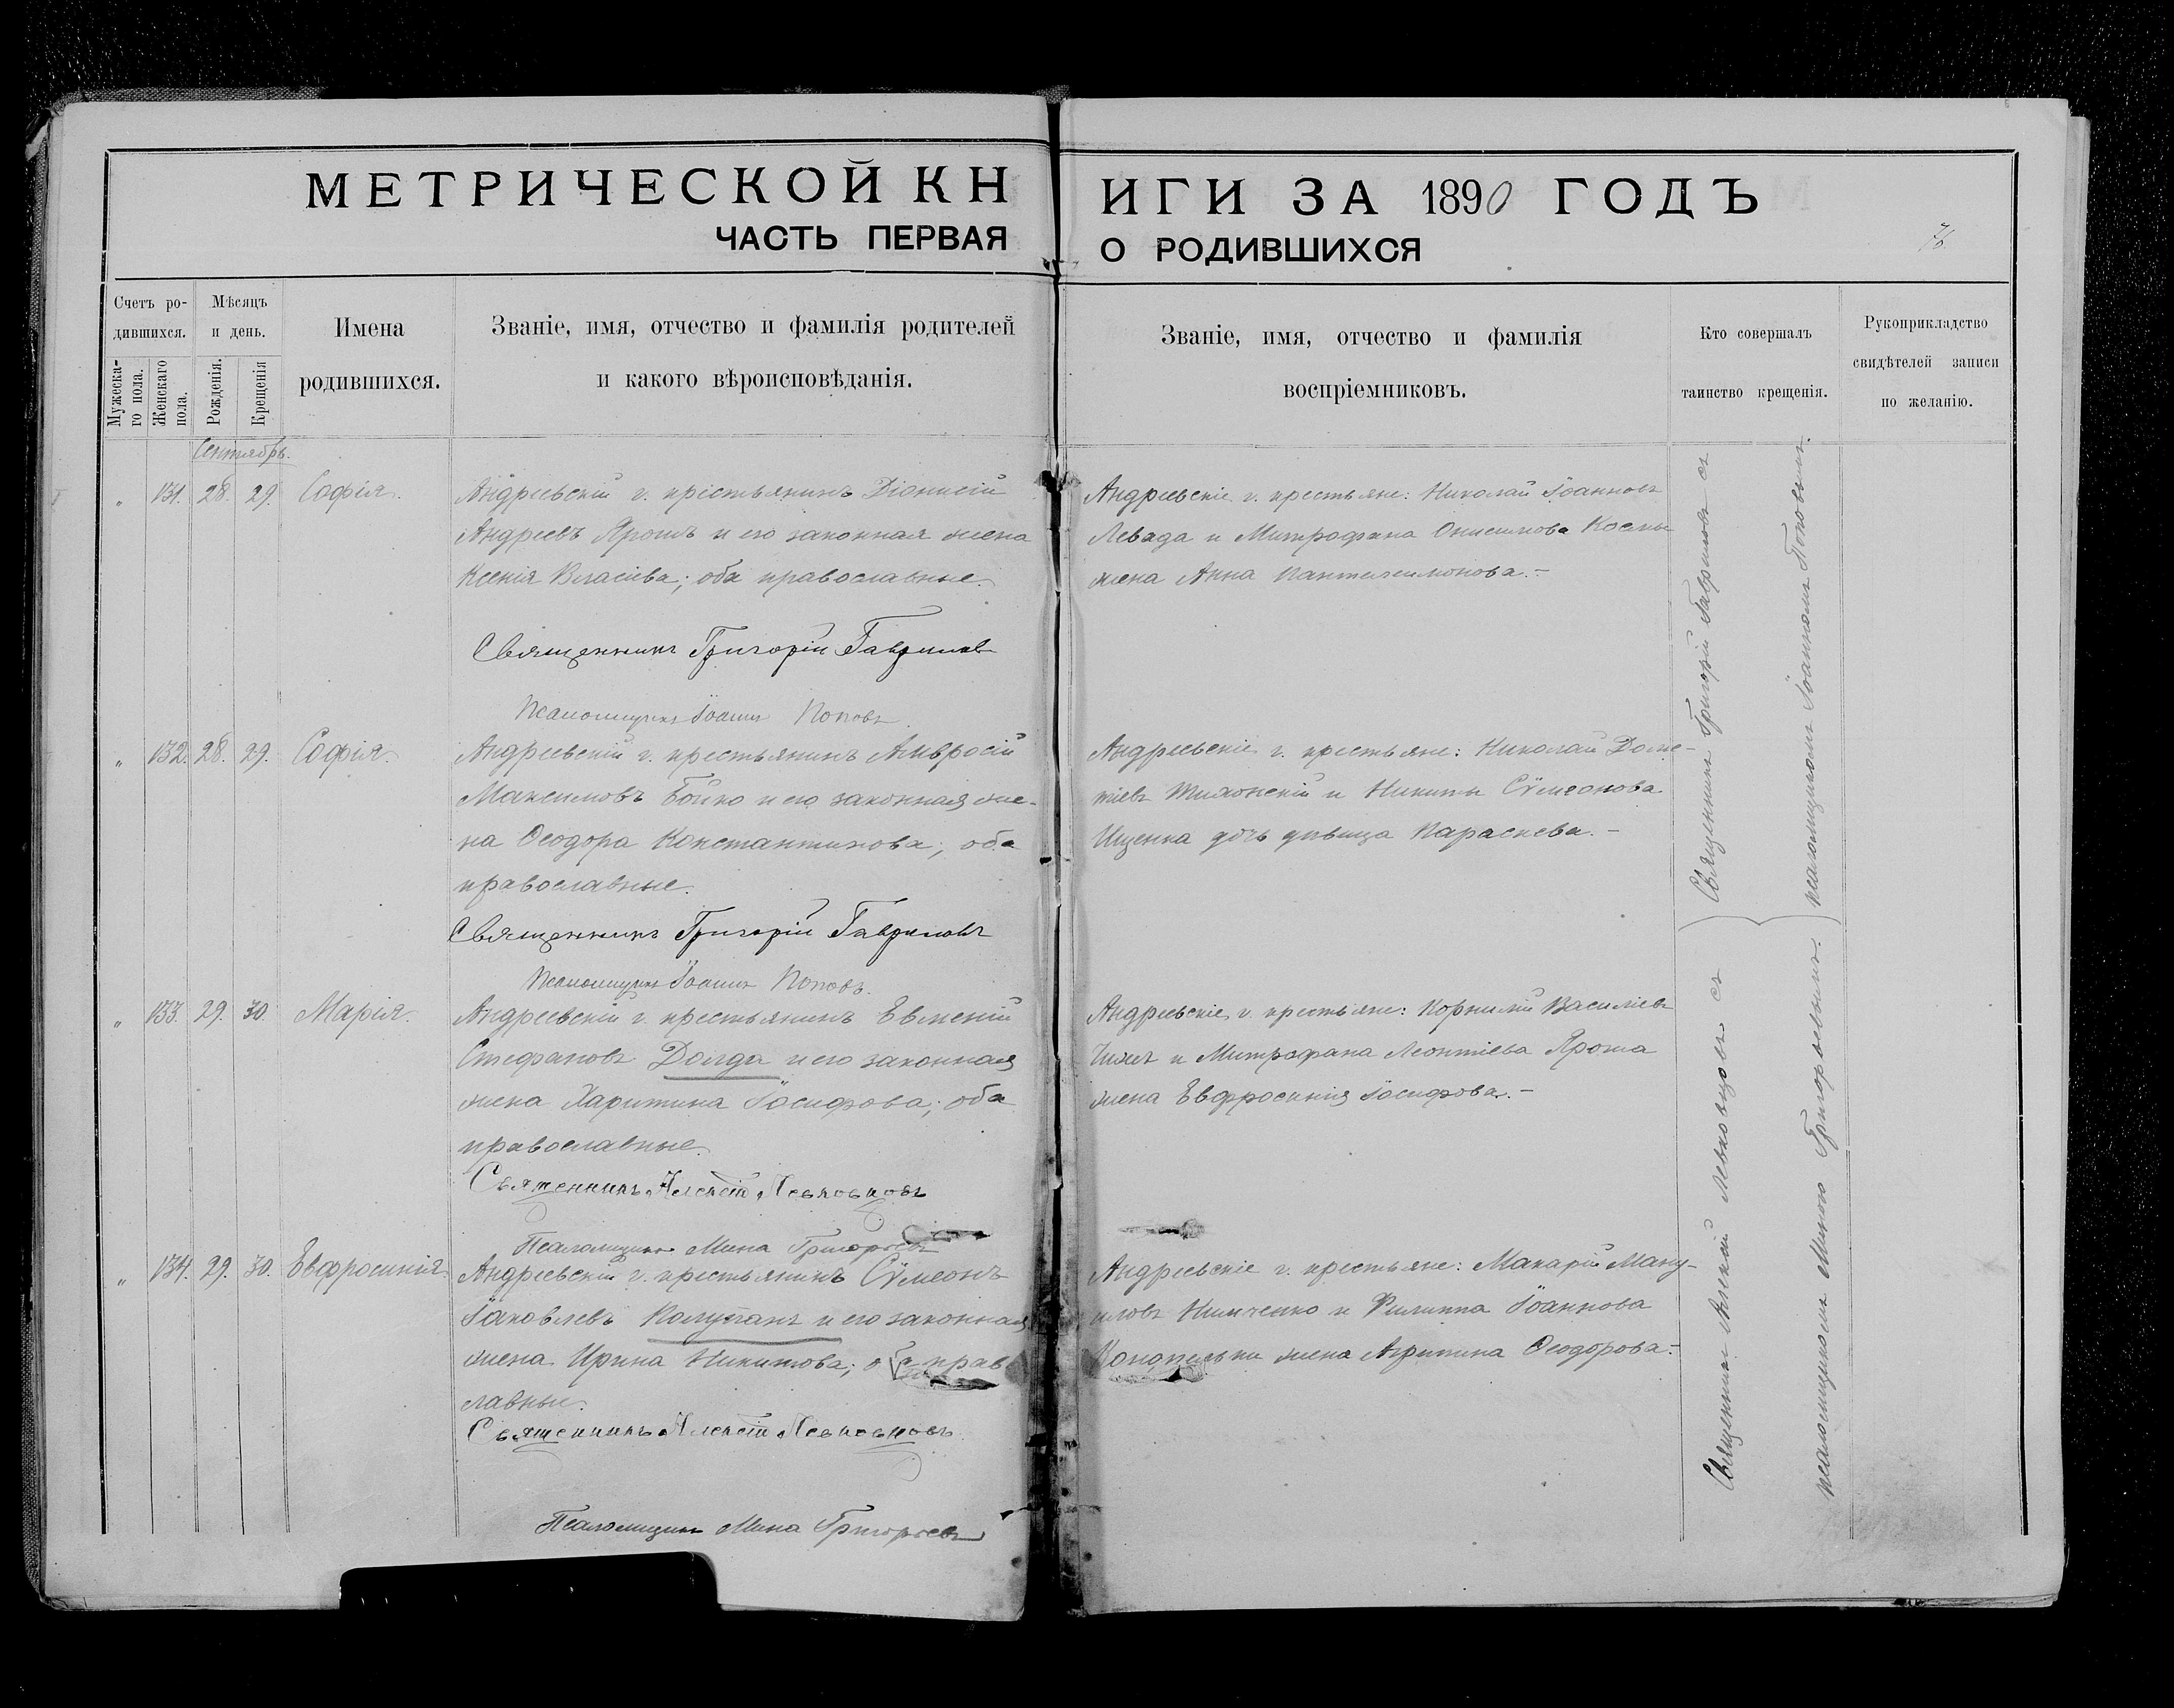 МЕТРИЧЕСКОЙ КНИГИ ЗА 1890 ГОДЪ
ЧАСТЬ ПЕРВАЯ О РОДИВШИХСЯ
76.
Счетъ ро-
дившихся.
Мужеска-
го пола.
Женскаго
пола.
Мѣсяцъ
и день.
Рожденія.
Крещенія
Имена
родившихся.
Званіе, имя, отчество и фамилія родителей
и какого вѣроисповѣданія.
Званіе, имя, отчество и фамилія
воспріемниковъ.
Кто совершалъ
таинство крещенія.
Рукоприкладство
свидѣтелей записи
по желанію.
Сентябрь.
" 131. 28. 29. Софія.
Андреевскій г. крестьянинъ Діонисій
Андреевъ Ярошъ и его законная жена
Ксенія Власіева; оба православные.
Священникъ Григорій Гавриловъ
Псаломщикъ Іоаннъ Поповъ.
Андреевскіе г. крестьяне: Николай Іоанновъ
Левада и Митрофана Онисимова
жена Анна Пантелеимонова.-
" 132. 28. 29. Софія.
Андреевскій г. крестьянинъ Амвросій
Максимовъ Бойко и его законная же-
на Ѳеодора Константинова; оба
православные.
Священникъ Григорій Гавриловъ
Псаломщикъ Іоаннъ Поповъ.
Андреевскіе г. крестьяне: Николай Доме-
тіевъ и Никиты Сѵмеонова
Ищенка дочь дѣвица Параскева.-
Священникъ Григорій Гавриловъ съ
псаломщикомъ Іоанномъ Поповымъ.
" 133. 29. 30. Марія.
Андреевскій г. крестьянинъ Евменій
Стефановъ Долда и его законная
жена Харитина Іосифова; оба
православные.
Священникъ Алексій Левковцовъ
Псаломщикъ Мина Григорьевъ
Андреевскіе г. крестьяне: Корнилій Василіевъ
Чижъ и Митрофана Леонтіева Яроша
жена Евфросинія Іосифова.-
" 134. 29. 30. Евфросинія.
Андреевскій г. крестьянинъ Сѵмеонъ
Іаковлевъ Калупанъ и его законная
жена Ирина Никитова; оба право-
славные.
Священникъ Алексій Левковцовъ
Псаломщикъ Мина Григорьевъ
Андреевскіе г. крестьяне: Макарій Ману-
иловъ Кимченко и Филиппа Іоаннова
Конопельки жена Агрипина Ѳеодорова.-
Священникъ Алексій Левковцовъ съ
псаломщикомъ Миною Григоровымъ.